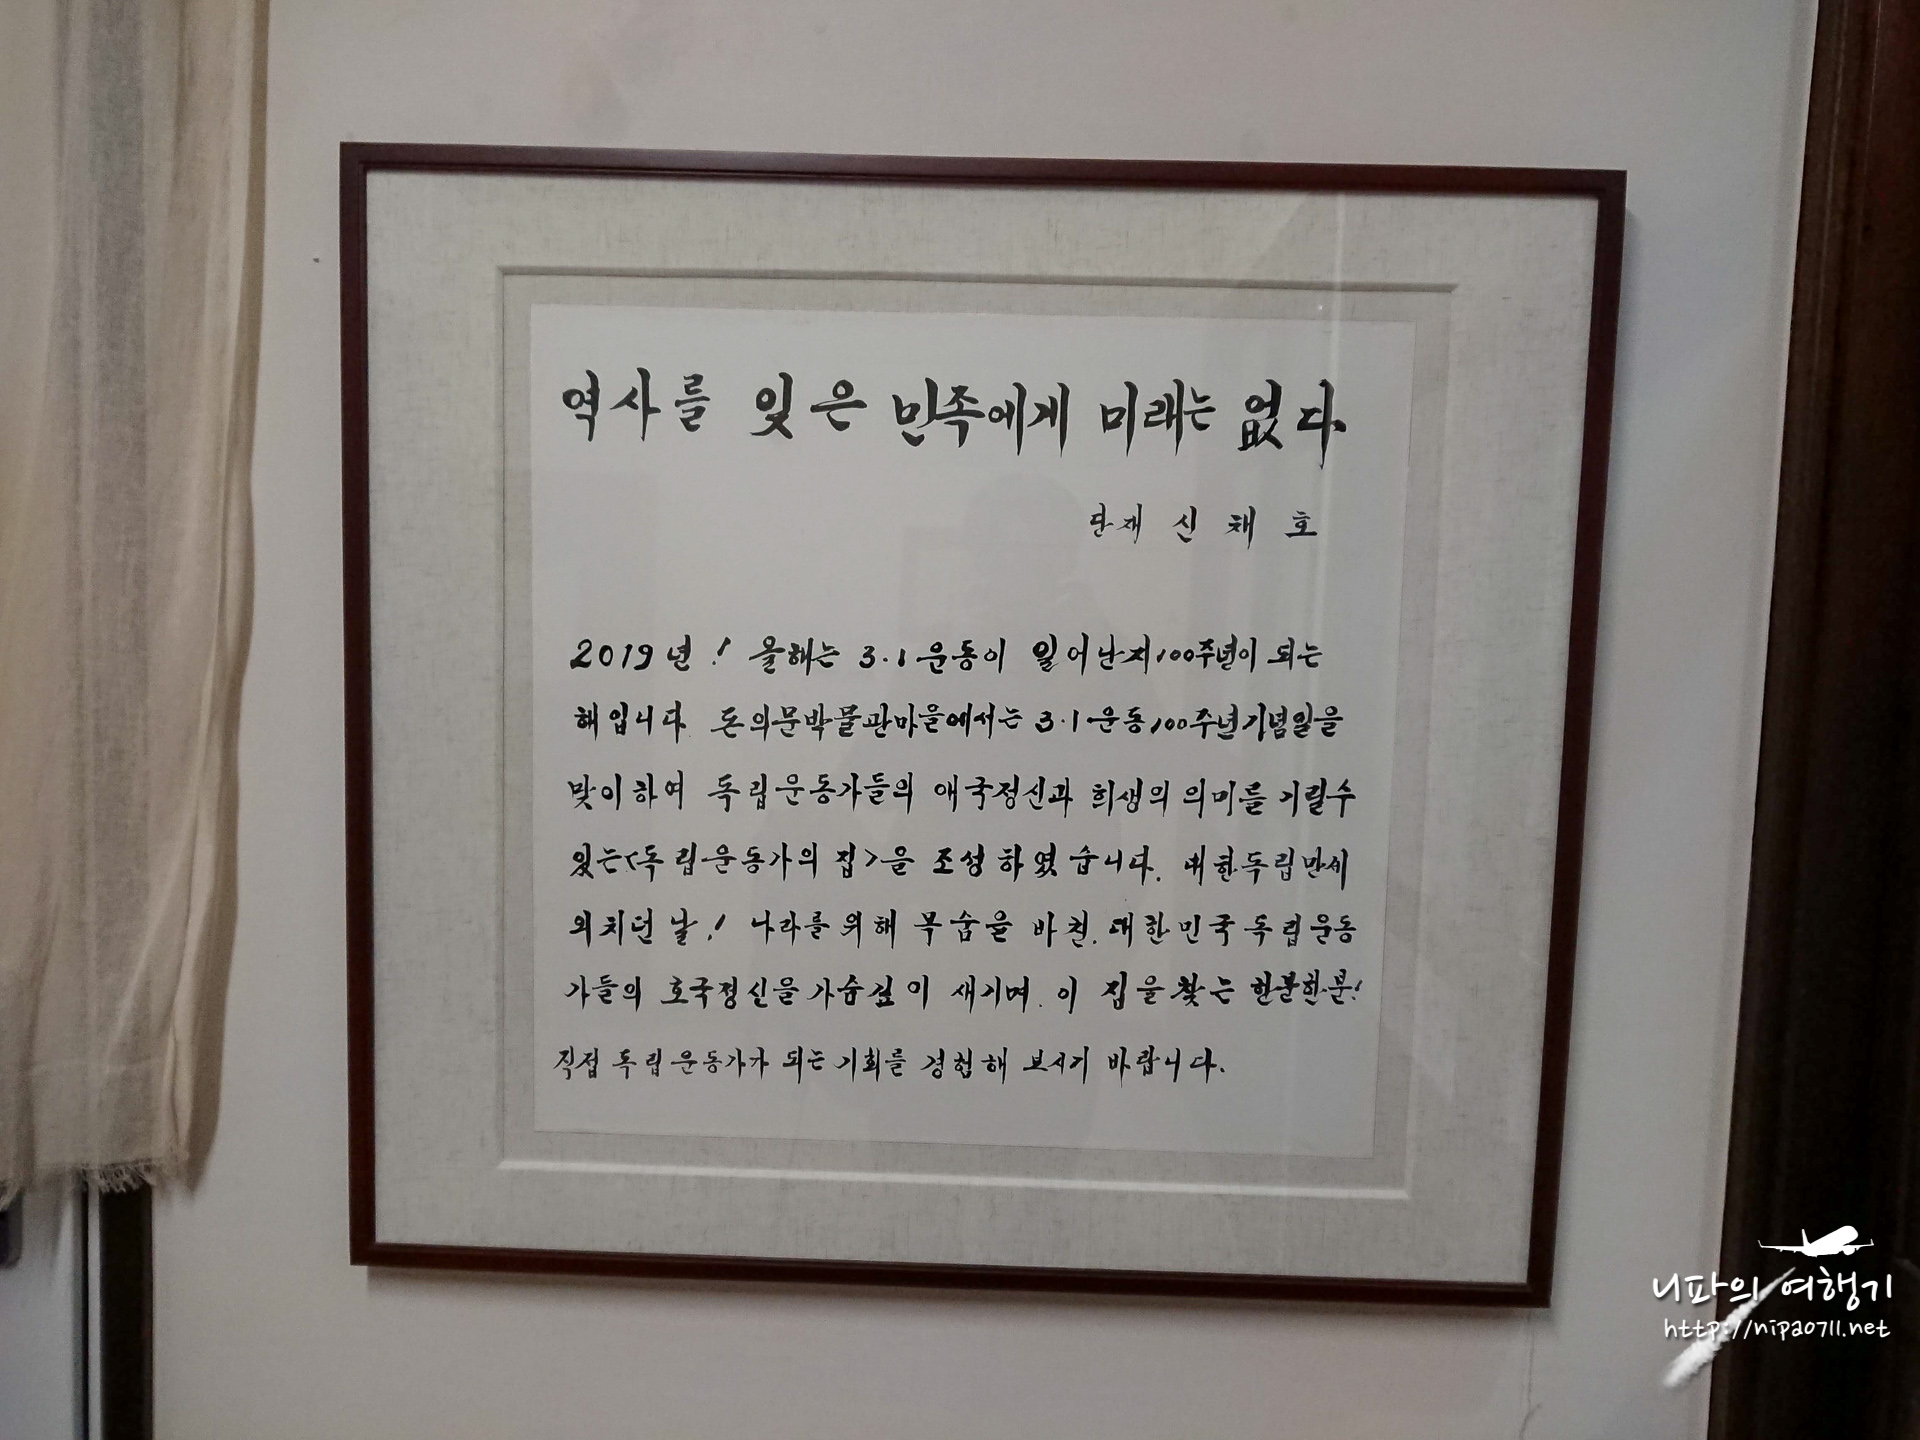 역사를 잊은 민족에게 미래는 없다
단재 신채호
2019년! 올해는 3·1운동이 일어난지100주년이 되는
해입니다 돈의문박물관마을에서는 3·1운동100주년기념일을
맞이하여 독립운동가들의 애국정신과 희생의 의미를 기릴수
있는<독립운동가의 집>을 조성하였습니다. 대한독립만세
외치던 날! 나라를 위해 목숨을 바친. 대한민국독립운동
가들의 호국정신을 가슴깊이 새기며. 이 집을 찾는 한분한분!
직접 독립운동가가 되는 기회를 경험해 보시기 바랍니다.
니파의 여행기
http://nipa0711.net